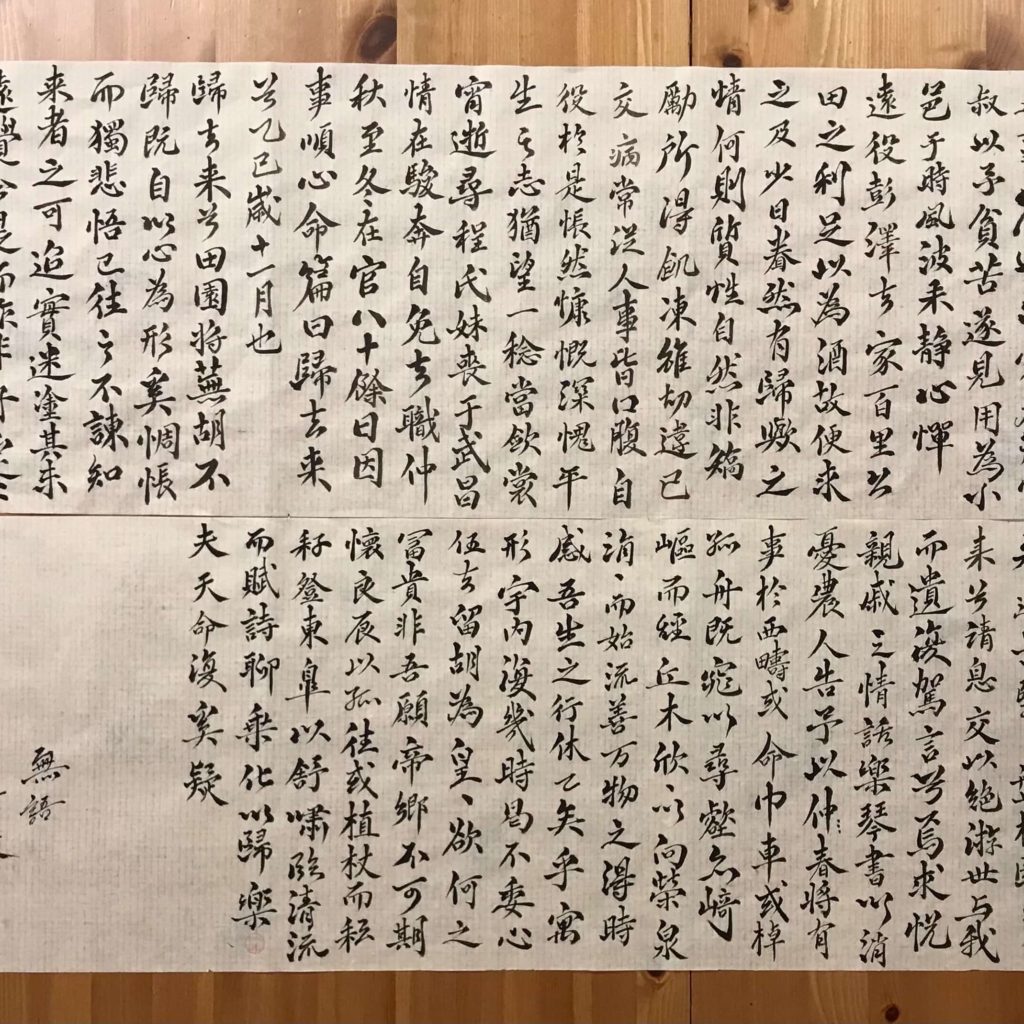 叔以予貧苦遂見用為小
邑于時風波未静心憚
遠役彭澤去家百里公
田之利足以為酒故便求
之及少日眷然有歸歟之
情何則質性自然非矯
勵所得飢凍雖切違己
交病常從人事皆口腹自
役於是悵然慷慨深愧平
生之志猶望一稔當斂裳
宵逝尋程氏妹喪于武昌
情在駿奔自免去職仲
秋至冬在官八十餘日因
事順心命篇曰歸去来
兮乙巳歲十一月也
歸去来兮田園将蕪胡不
歸既自以心為形奚惆悵
而獨悲悟已往之不諫知
来者之可追實迷塗其未
遠覺今是而昨非
来兮請息交以絶游世与我
而遺復駕言兮焉求悦
親戚之情話樂琴書以消
憂農人告予以仲春将有
事於西疇或命巾車或棹
孤舟既窈以尋壑亦崎
嶇而經丘木欣〻以向榮泉
涓〻而始流善万物之得時
感吾生之行休已矣乎寓
形宇内復幾時曷不委心
任去留胡為皇〻欲何之
富貴非吾願帝鄉不可期
懷良辰以孤往或植杖而耘
耔登東皐以舒嘯臨清流
而賦詩聊乗化以歸樂
夫天命復奚疑
無語